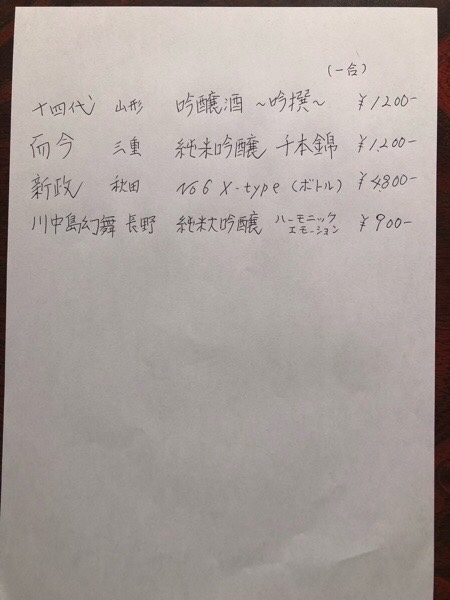 (一合)
十四代 山形 吟醸酒 ~吟撰~ ¥1200-
而今 三重 純米吟醸 千本錦 ¥1,200-
新政 秋田 No6 X-type (ボトル) ¥4,800-
川中島幻舞 長野 純米大吟醸 ハーモニック エモーション ¥900-